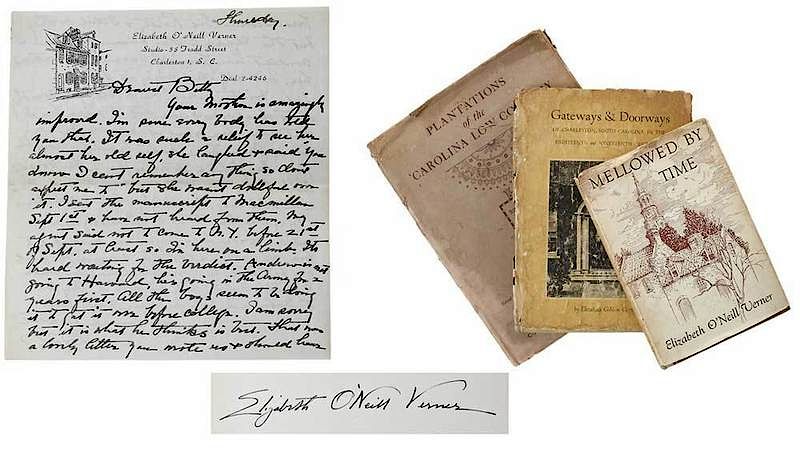 Thursday.
Elizabeth O'Neill Verner
Studio - 38 Tradd Street
Charleston 1, S. C.
Dial 2-4246
Dearest Betty
Your Mother is amazingly
improved. I'm sure every body has told
you that. It was such a relief to see her
almost her old self, she laughed & said "you
know I can't remember any thing, so don't
expect me to" but she wasn't doleful over
it. I sent the manuscript to Macmillan
Sept 1st & have not heard from them. My
agent said not to come to N.Y. before 21st
Sept. at least so I'm here on a limb. Its
hard waiting for the verdict. Andrew is not
going to Harvard, he's going in the Army for 2
years first. All the boys seem to be doing
it to get it over before college. I am sorry
but it is what he thinks is best. That was
a lovely letter you wrote us & I should have
PLANTATIONS
of the
CAROLINA LOW COUNTRY
Gateways & Doorways
OF CHARLESTON, SOUTH CAROLINA IN THE
EIGHTEENTH and NINETEENTH
by Elizabeth Gibbon
MELLOWED BY
TIME
Elizabeth O'Neill Verner
Elizabeth O'Neill Verner